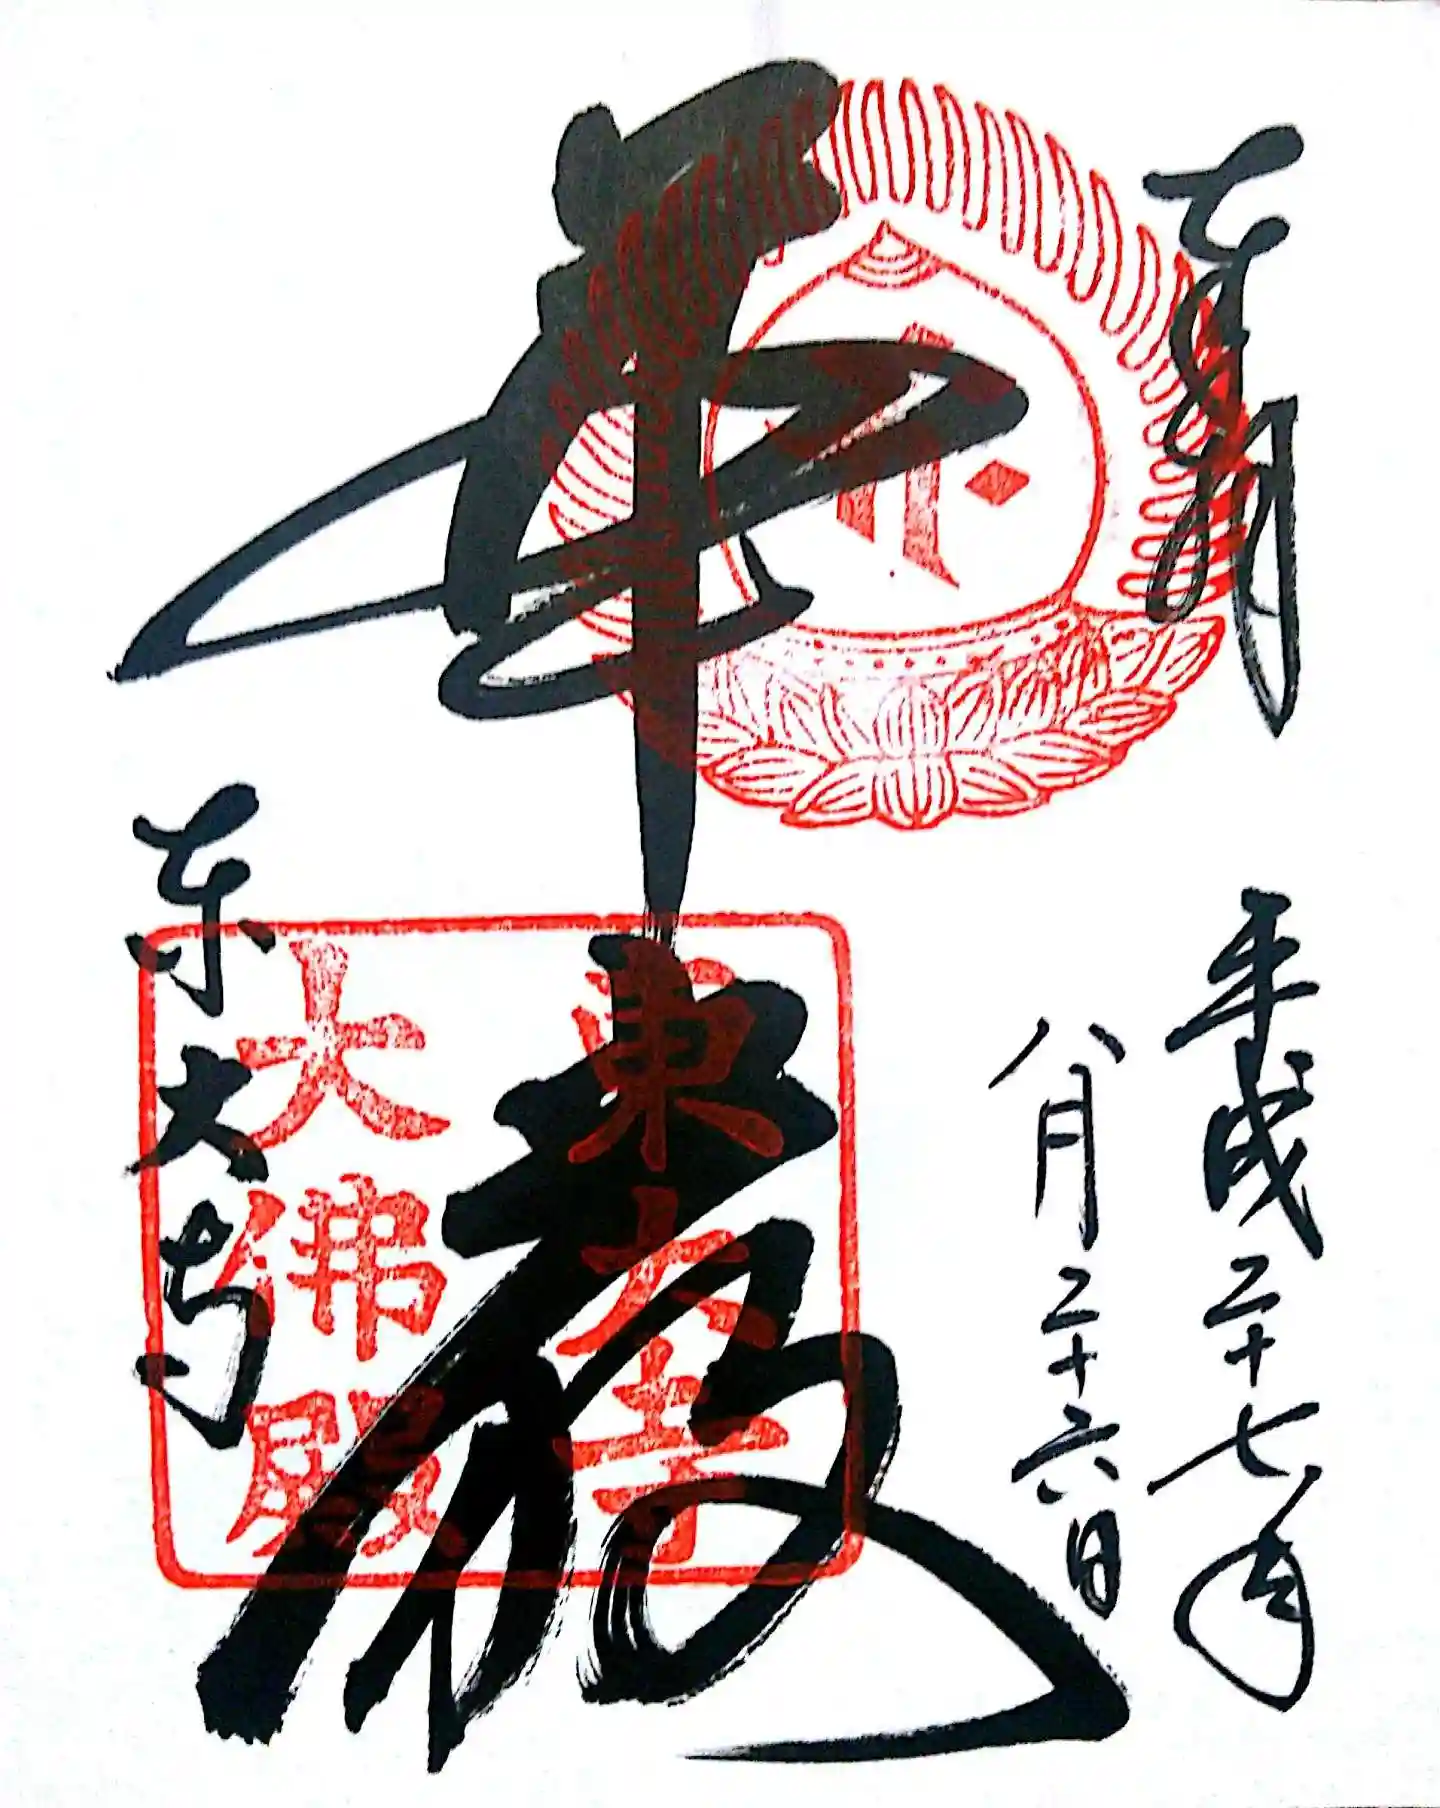 奉拝
平成二十七年
八月二十六日
華厳
東大寺
東大寺
大佛殿